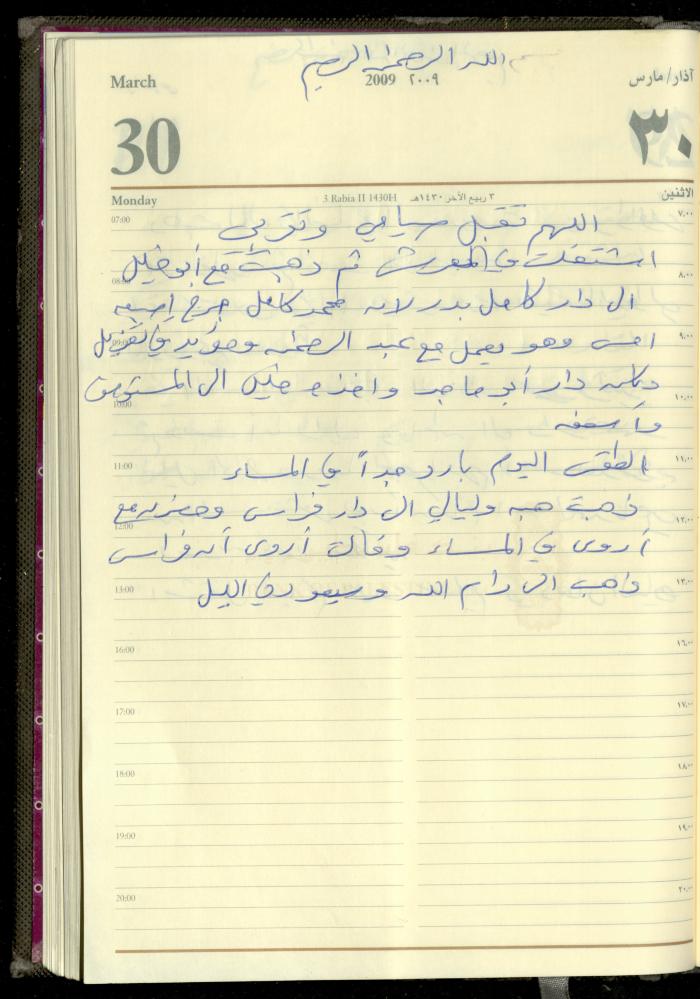 بسم الله الرحمن الرحيم
March
2009 ٢٠٠٩
آذار/مارس
30
٣٠
Monday
3 Rabia II 1430H
٣ ربيع الآخر ١٤٣٠هـ
الاثنين
اللهم تقبل صيامي وتقربي
اشتغلت في المعرش ثم ذهبت مع أبو خليل
الى دار كامل بدر لان محمد كامل جرح إصبعه
امس وهو يعمل مع عبد الرحمن ومؤيد في تنزيل
دار أبو ماجد واخذه خليل الى المستوصف
وأسعفه
الطقس اليوم بارد جداً في المساء
ذهبت هبه وليالي الى دار فراس وحضرن مع
أروى في المساء وقالت أروى أن فراس
ذاهب الى رام الله وسيعود في الليل
07:00
٧:٠٠
08:00
٨:٠٠
09:00
٩:٠٠
10:00
١٠:٠٠
11:00
١١:٠٠
12:00
١٢:٠٠
13:00
١٣:٠٠
16:00
١٦:٠٠
17:00
١٧:٠٠
18:00
١٨:٠٠
19:00
١٩:٠٠
20:00
٢٠:٠٠